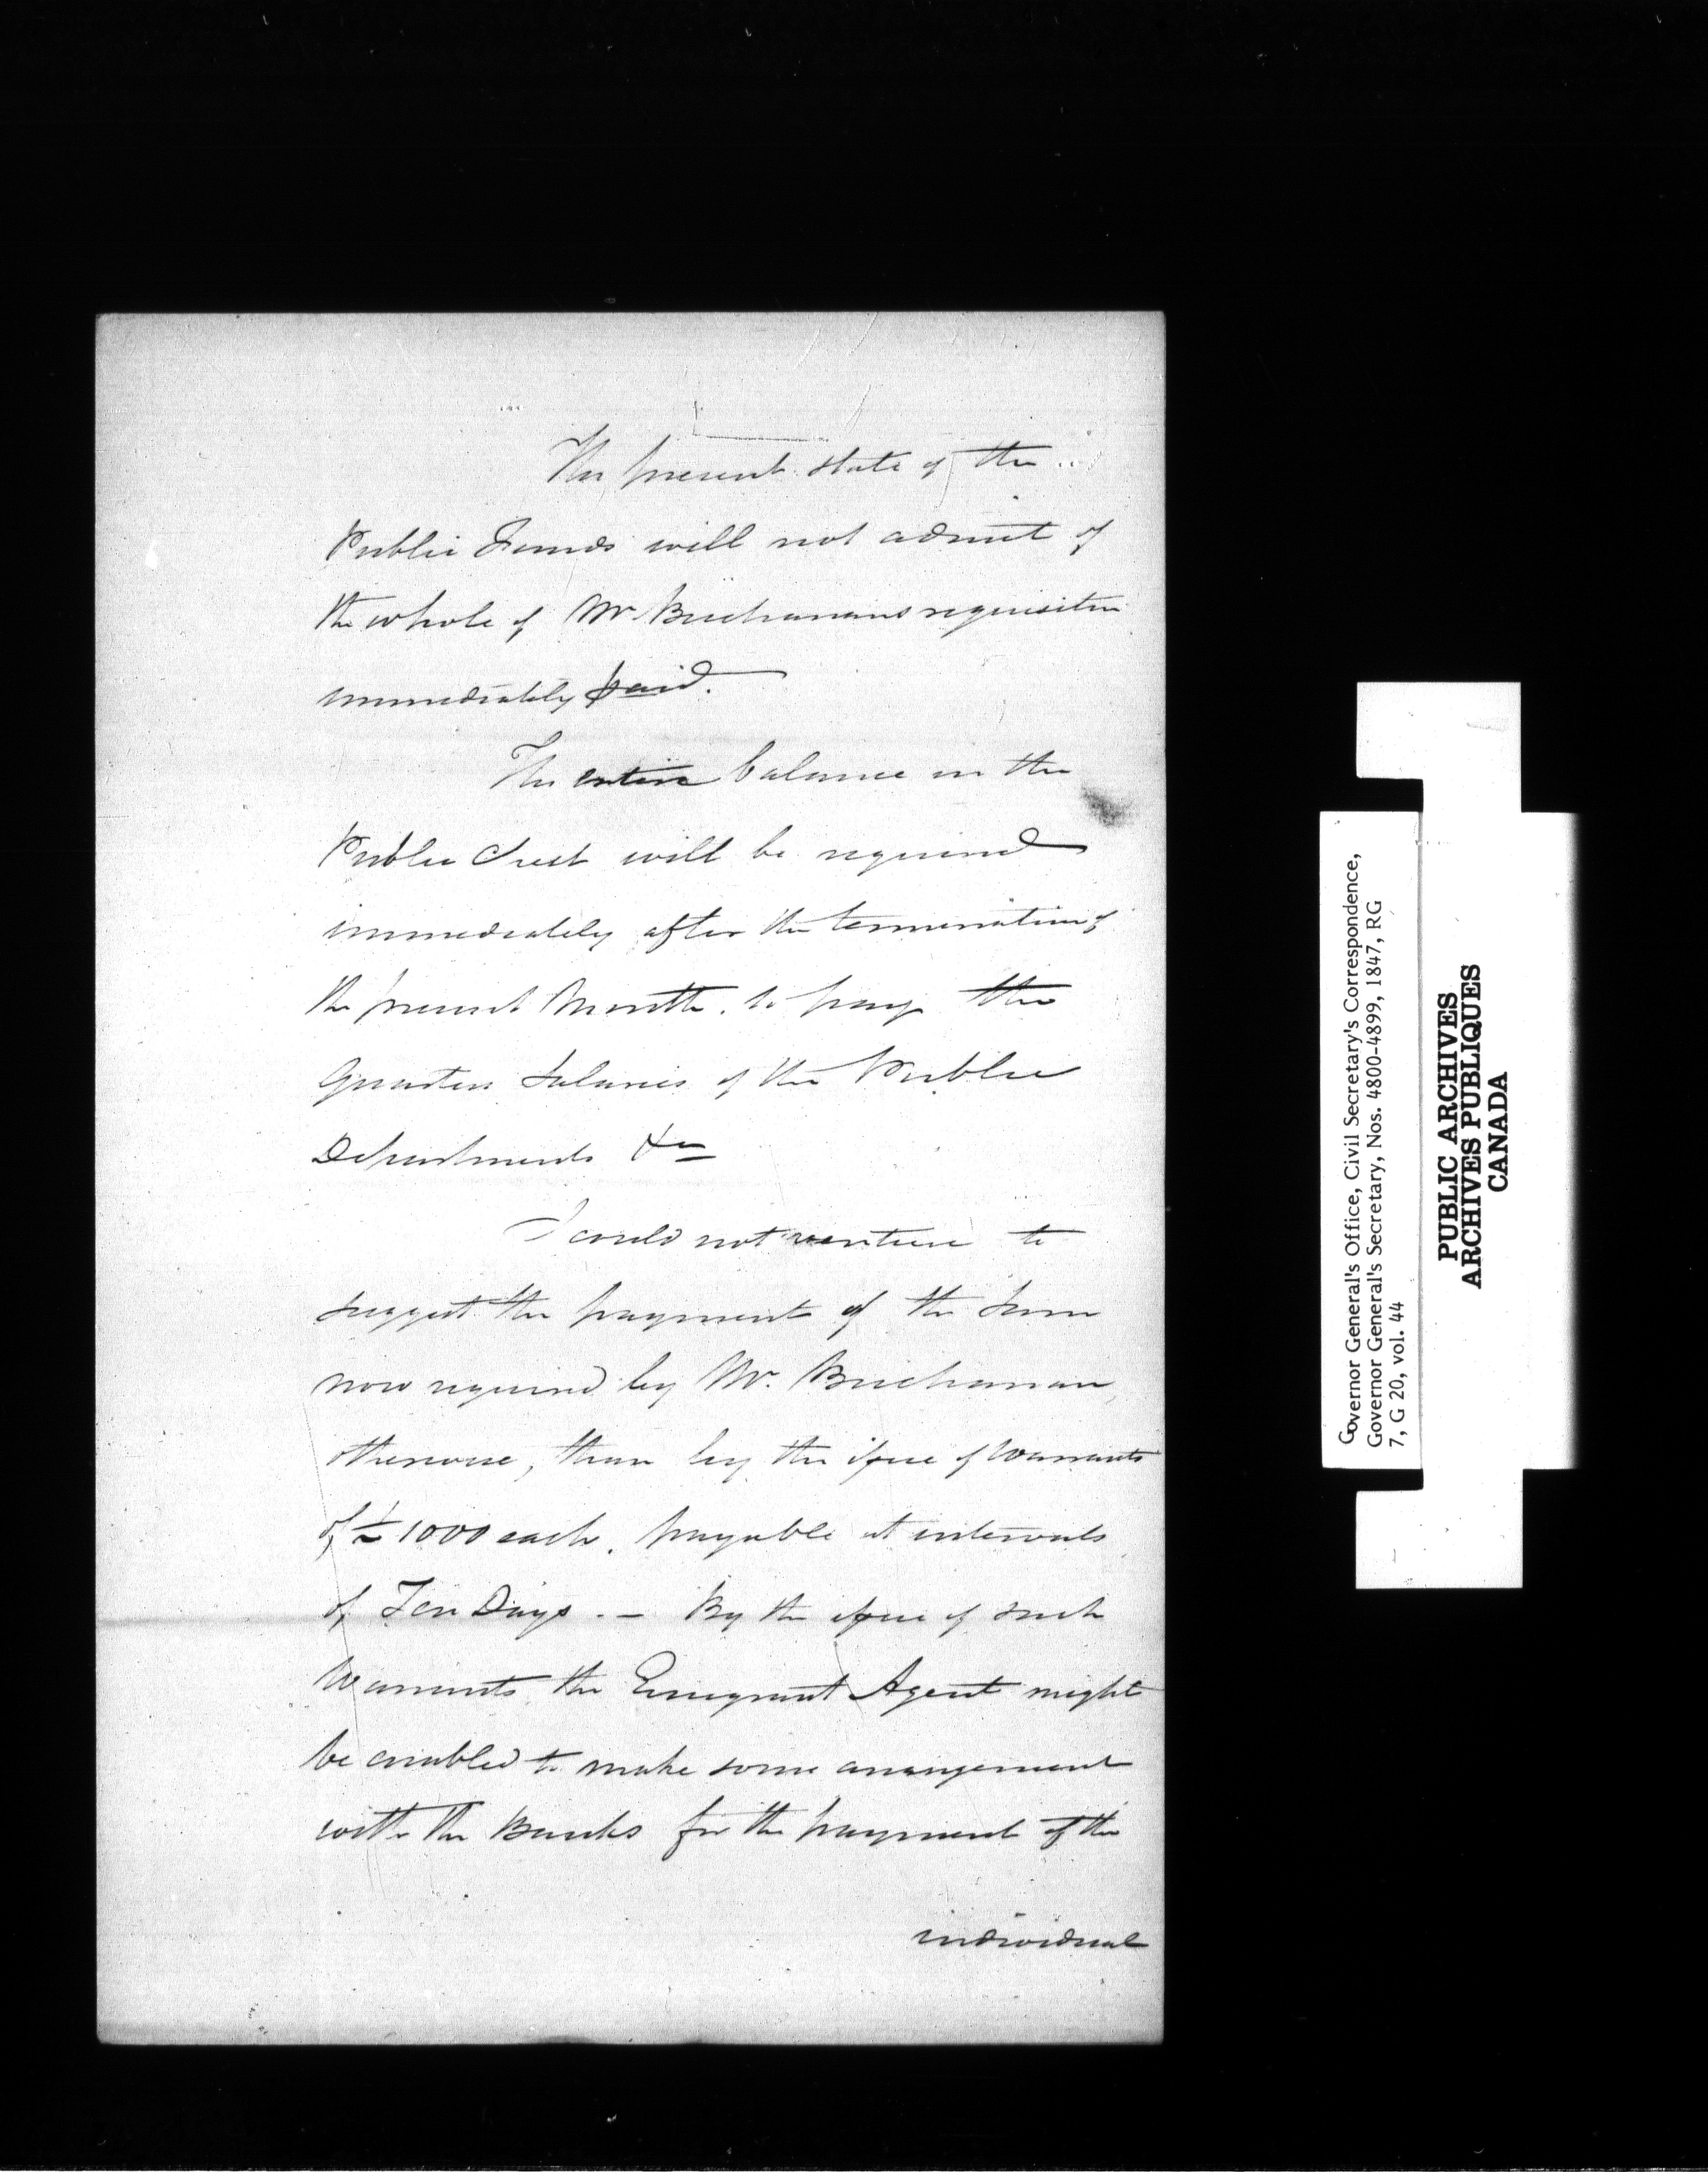 The present state of the
Public Funds will not admit of
the whole of Mr. Buchanans requisition
immediately paid.
The entire balance in the
Public Chest will be required
immediately after the termination of
the present Month. to pay the
Quarters Salaries of the Public
Departments &c
I could not venture to
suggest the payment of the sum
now required by Mr. Buchanan,
otherwise, than by the issue of Warrants
of £1000 each. payable at intervals
of Ten Days. — By the issue of such
Warrants the Emigrant Agent might
be enabled to make some arrangement
with the Banks for the payment of the
individual
Governor General's Office, Civil Secretary's Correspondence,
Governor General's Secretary, Nos. 4800-4899, 1847, RG
7, G 20, vol. 44
PUBLIC ARCHIVES
ARCHIVES PUBLIQUES
CANADA